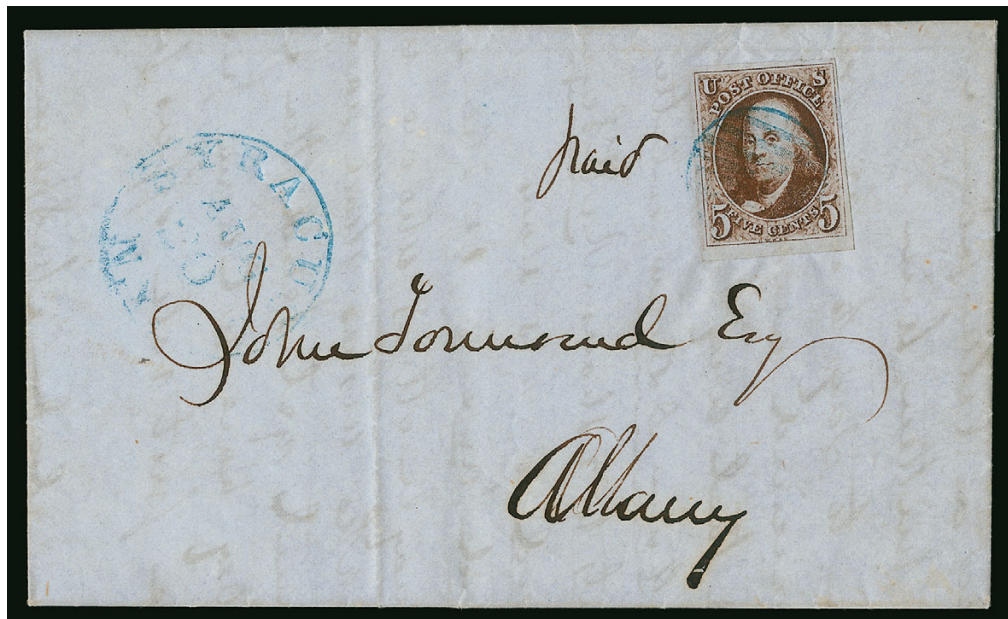 U S
POST OFFICE
5 FIVE CENTS 5
paid
SYRACU
AUG
30
N.Y
John Townsend Esq
Albany